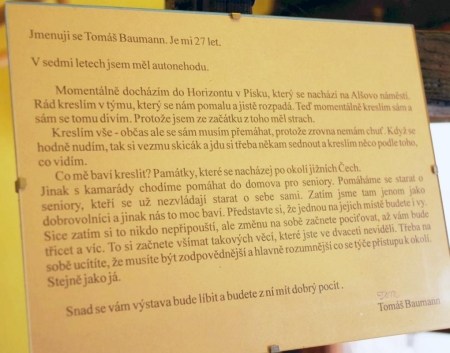 Jmenuji se Tomáš Baumann. Je mi 27 let.
V sedmi letech jsem měl autonehodu.
Momentálně docházím do Horizontu v Písku, který se nachází na Alšovo náměstí.
Rád kreslím v týmu, který se nám pomalu a jistě rozpadá. Teď momentálně kreslím sám a
sám se tomu divím. Protože jsem ze začátku z toho měl strach.
Kreslím vše - občas ale se sám musím přemáhat, protože zrovna nemám chuť. Když se
hodně nudím, tak si vezmu skicák a jdu si třeba někam sednout a kreslím něco podle toho,
co vidím.
Co mě baví kreslit? Památky, které se nacházej po okolí jižních Čech.
Jinak s kamarády chodíme pomáhat do domova pro seniory. Pomáháme se starat o
seniory, kteří se už nezvládají starat o sebe sami. Zatím jsme tam jenom jako
dobrovolníci a jinak nás to moc baví. Představte si, že jednou na jejich místě budete i vy.
Sice zatím si to nikdo nepřipouští, ale změnu na sobě začnete pociťovat, až vám bude
třicet a víc. To si začnete všímat takových věcí, které jste ve dvaceti neviděli. Třeba na
sobě ucítíte, že musíte být zodpovědnější a hlavně rozumnější co se týče přístupu k okolí.
Stejně jako já.
Snad se vám výstava bude líbit a budete z ní mít dobrý pocit .
Tomáš Baumann